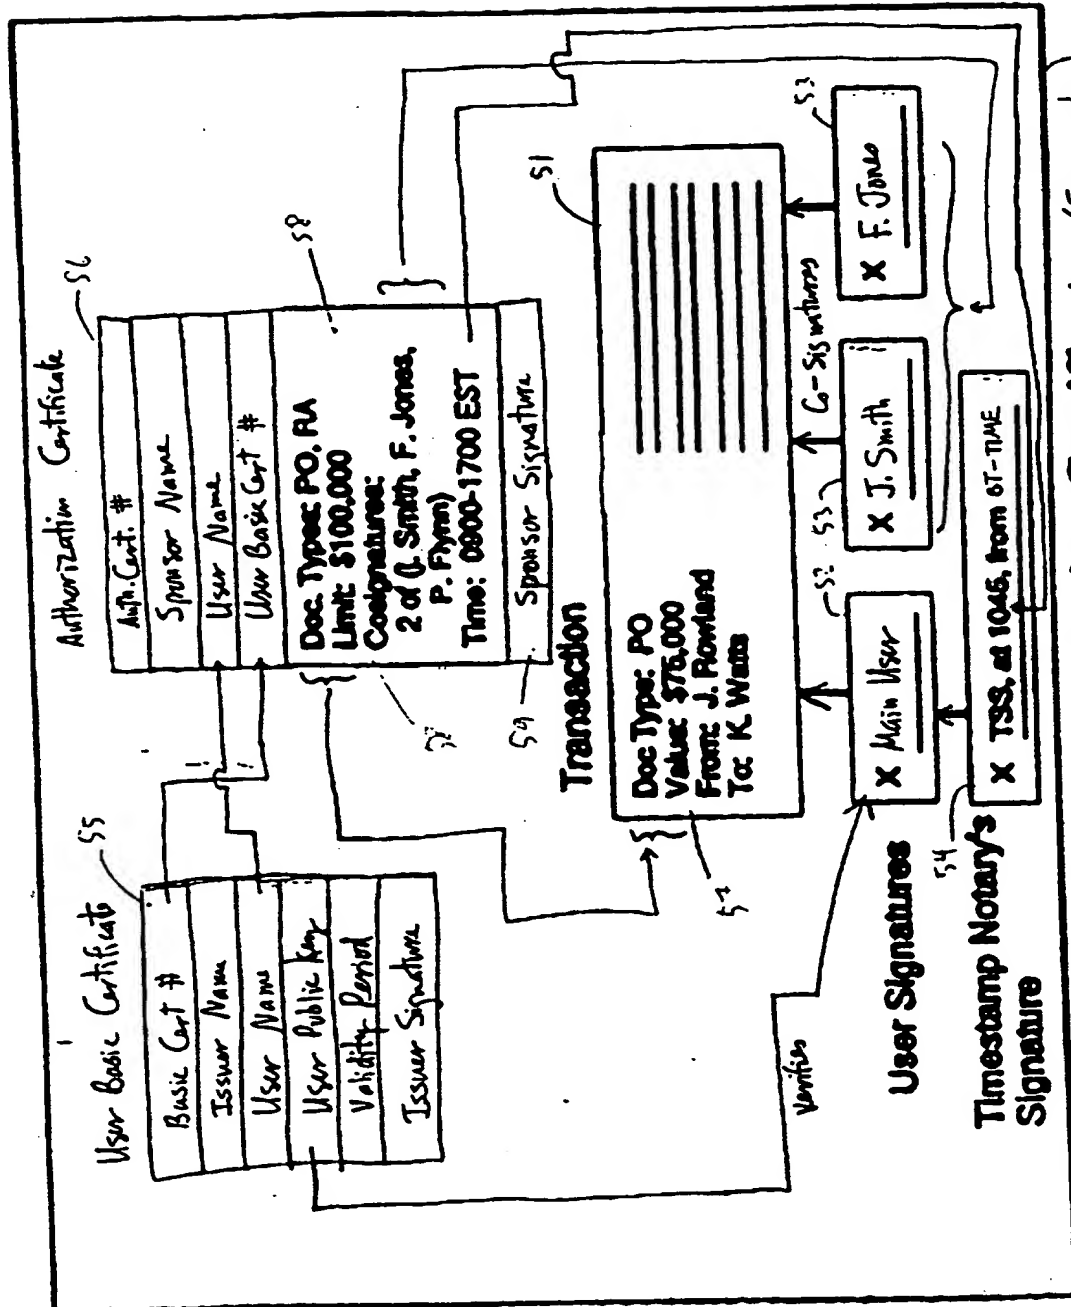 User Basic Certificate
55
Basic Cert #
Issuer Name
User Name
User Public Key
Validity Period
Issuer Signature
Authorization Certificate
56
Auth. Cert. #
Sponsor Name
User Name
User Basic Cert #
Doc. Types: PO, RA
Limit: $100,000
Cosignatures:
2 of (J. Smith, F. Jones,
P. Flynn)
Time: 0900-1700 EST
Sponsor Signature
58
58
59
Transaction
51
Doc Type: PO
Value: $75,000
From: J. Rowland
To: K. Watts
57
verifies
Co-Signatures
User Signatures
52
X Main User
53
X J. Smith
53
X F. Jones
Timestamp Notary's
Signature
54
X TSS, at 1045, from BT-TIME